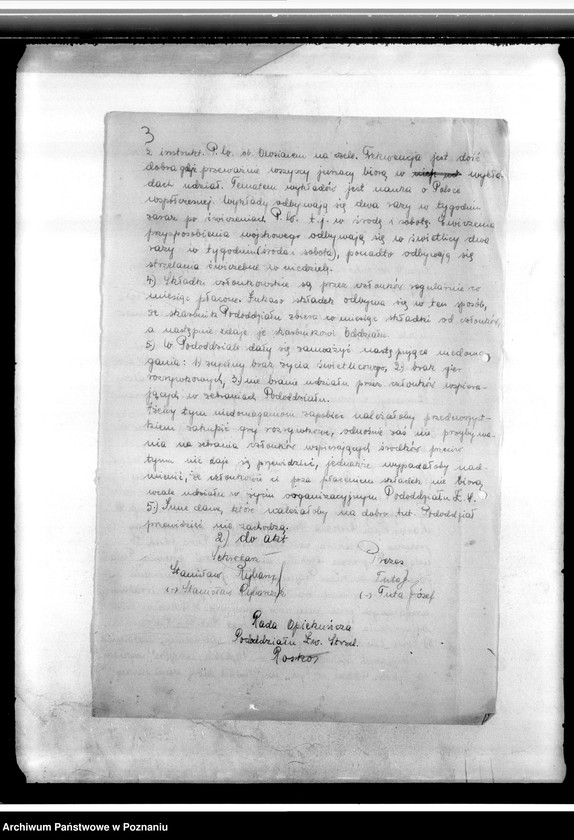 3
z instrukt. P.W. ob. na czele. Frekwencja jest dość
dobra gdyż przeważnie wszyscy junacy biorą w wykła-
dach udział. Tematem wykładów jest nauka o Polsce
współczesnej. Wykłady odbywają się dwa razy w tygodniu
zaraz po ćwiczeniach P.W. t.j. w środę i sobotę. Ćwiczenia
przysposobienia wojskowego odbywają się w świetlicy dwa
razy w tygodniu (środa i sobota), ponadto odbywają się
strzelania ćwiczebne w niedzielę.
4) Składki członkowskie są przez członków regularnie co
miesiąc płacone. Inkaso składek odbywa się w ten sposób,
że skarbnik Pododdziału zbiera co miesiąc składki od członków,
a następnie zdaje je skarbnikowi Oddziału.
5) W Pododdziale dały się zauważyć następujące niedoma-
gania: 1) zupełny brak życia świetlicowego, 2) brak gier
rozrywkowych, 3) nie branie udziału przez członków wspiera-
jących w zebraniach Pododdziału.
Żeby tym niedomaganiom zapobiec należałoby przedewszyst-
kiem zakupić gry rozrywkowe, odnośnie zaś nie przybywa-
nia na zebrania członków wspierających środków przeciw
temu nie daje się przewidzieć, jednakże wypadałoby nad-
mienić, że członkowie ci poza płaceniem składek nie biorą
wcale udziału w życiu organizacyjnym Pododdziału Z.S.
5.) Inne dane, które należałoby na dobro tut. Pododdział
przewidzieć nie zachodzą.
2) do akt
Sekretarz Prezes
Stanisław Tuta
(-) Stanisław (-) Tuta Józef
Rada Opiekuńcza
Pododdziału Zw. Strzel.
Roszkos
Archiwum Państwowe w Poznaniu